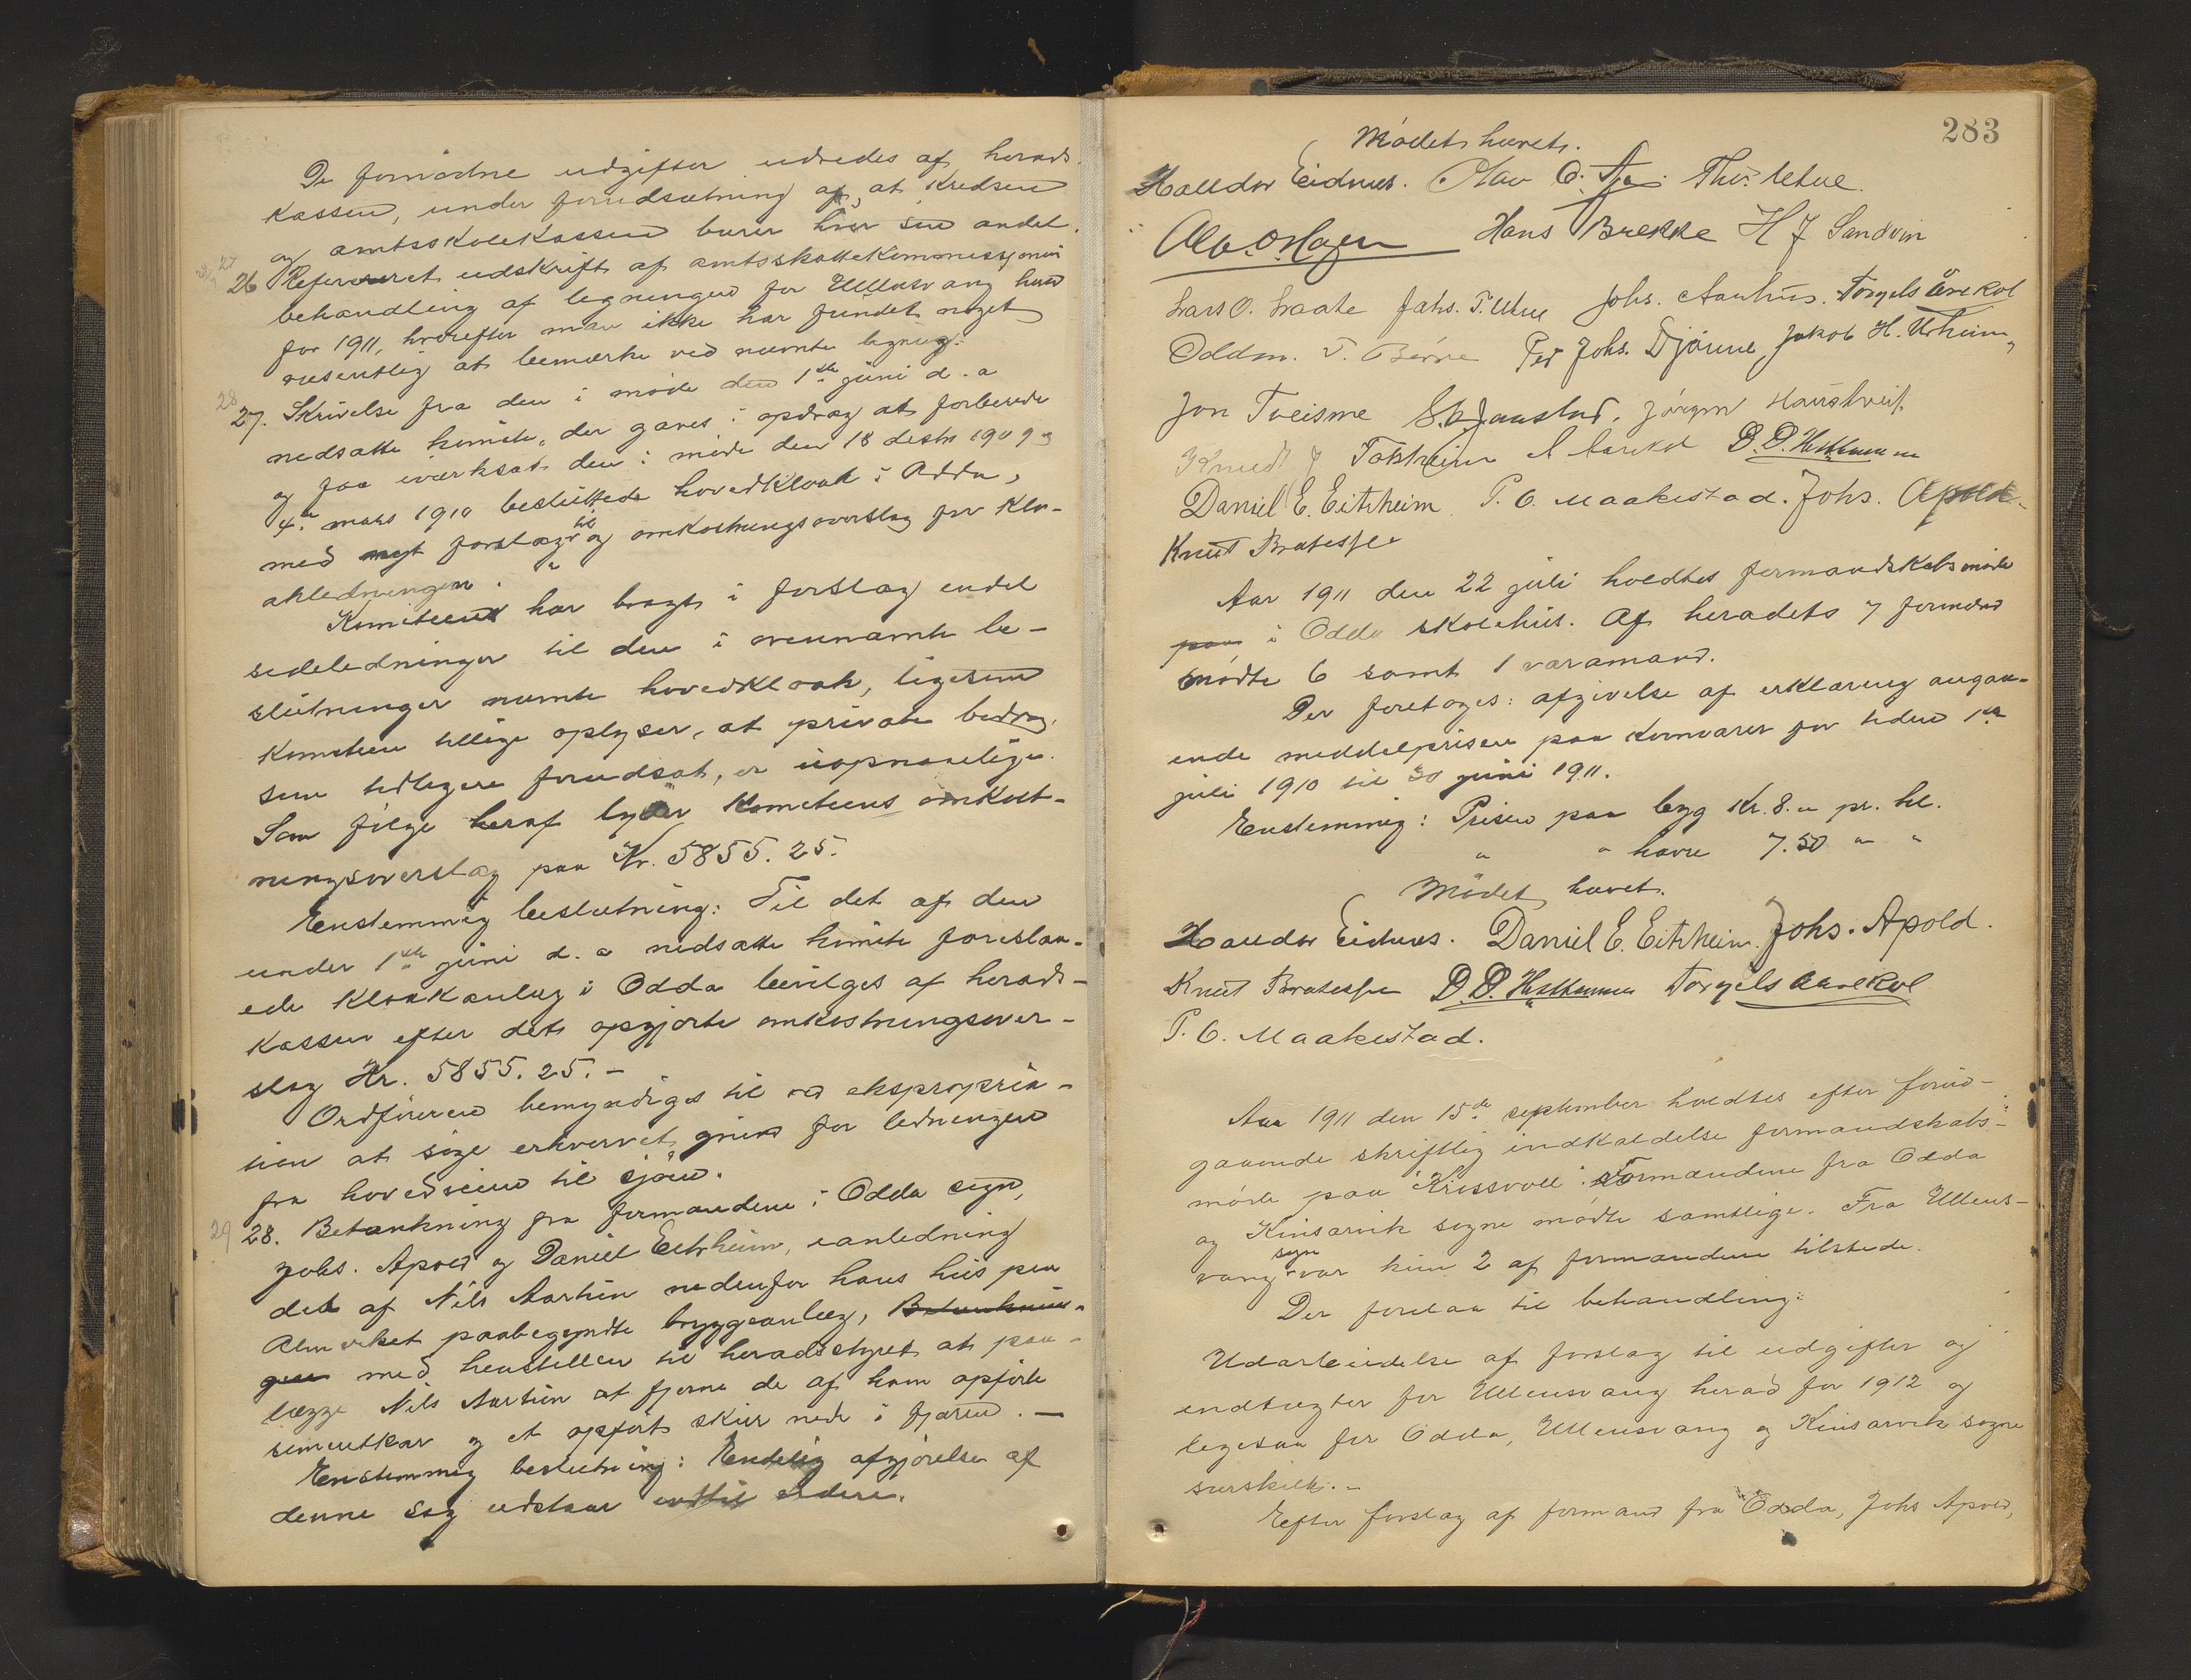 De fornødne udgifter udredes af herads-
kassen, under forudsætning af, at kredsen
og amtsskolekassen bærer hver sin andel.
27
26 Refereret udskrift af amtsskattekommissjonens
behandling af ligningen for Ullensvang herad
for 1911, hvorefter man ikke har fundet noget
væsentlig at bemærke ved nævnte ligning.
28
27. Skrivelse fra den i møde den 1ste juni d. a
nedsatte komite, der gaves i opdrag at forberede
og faa iværksat den i møde den 18 desbr 1909 og
4de mars 1910 besluttede hovedkloak i Odda,
med nyt forslag til og omkostningsoverslag for klo-
akledningen.
Komiteens har bragt i forslag endel
sideledninger til den i ovennævnte be-
slutninger nævnte hovedkloak, ligesom
komiteen tillige oplyser, at private bidrag,
som tidligere forudsat, er uopnaaelige.
Som følge heraf lyder komiteens omkost-
ningsoverslag paa Kr. 5855.25.
Enstemmig beslutning: Til det af den
under 1ste juni d. a nedsatte komite foreslaa-
ede kloakanlæg i Odda bevilges af herads-
kassen efter det opgjorte omkostningsover-
slag Kr. 5855.25.-
Ordføreren bemyndiges til ved ekspropria-
tion at søge erhvervet grund for ledningen
fra hovedveien til sjøen.
29
28. Betænkning fra formændene i Odda sogn,
Johs. Apold og Daniel Eitrheim, i anledning
det af Nils Aartun nedenfor hans hus paa
Almerket paabegyndte bryggeanlæg, Betænknin-
gen med henstillen til heradsstyret at paa-
lægge Nils Aartun at fjerne de af ham opførte
sementkar og et opført skur nede i fjæren. —
Enstemmig beslutning: Endelig afgjørelse af
denne sag udstaar indtil videre.
283
Mødet hævet.
Halldor Eidnes. Olav O. Aga. Thos. Utne.
Hans Brekke H J Sandvin
Lars O. Laate Johs. T. Utne Johs. Aarhus. Torgels Årekol
Oddm. T. Børve Per Johs. Djønne Jakob H. Urheim
Jon Tveisme S. O. Jaastad. Jørgen Haustveit.
Knud J Tokheim A Aarekol D. D. Hildkemmen
Daniel E. Eitrheim P. O. Maakestad. Johs. Apold.
Knut Bratespe
Aar 1911 den 22 juli holdtes formandskabsmøde
paa i Odda skolehus. Af heradets 7 formænd
mødte 6 samt 1 varamand.
Der foretoges: afgivelse af erklæring angaa-
ende middelprisen paa kornvarer for tiden 1ste
juli 1910 til 30 juni 1911.
Enstemmig: Prisen paa byg Kr. 8. " pr. hl.
" " havre 7.50 " "
Mødet hævet.
Halldor Eidnes. Daniel E. Eitrheim. Johs. Apold.
Knut Bratespe D. D. Hildkemmen Torgels Aarekol
P. O. Maakestad.
Aar 1911 den 15de september holdtes efter forud-
gaaende skriftlig indkaldelse formandskabs-
møde paa "Krissvoll". Formændene fra Odda
og Kinsarvik sogne mødte samtlige. Fra Ullens-
vang sogn var kun 2 af formændene tilstede.
Der forelaa til behandling:
Udarbeidelse af forslag til udgifter og
indtægter for Ullensvang herad for 1912 og
ligesaa for Odda, Ullensvang og Kinsarvik sogne
særskilt. -
Efter forslag af formand fra Odda, Johs Apold,